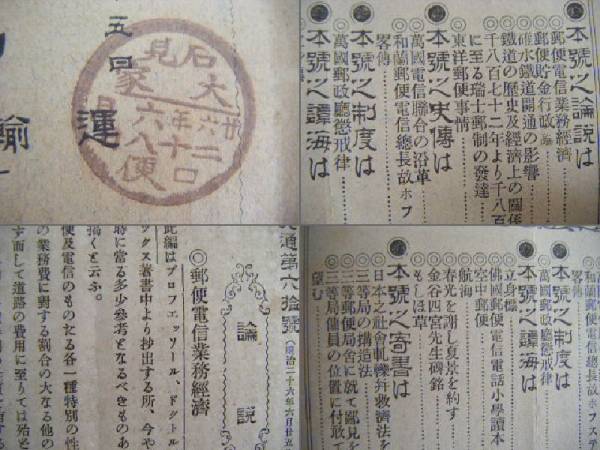 五回
運
輸
石見
大家
廿六年
二十口
六八便
本號之論説は
◎郵便電信業務經濟
郵便貯金行政論
碓水鐵道開通の影響
鐵道の歴史及經濟上の關係
千八百七十二年より千八百
に至る瑞士郵制の發達
東洋郵便事情
本號之史傳は
萬國電信聯合の沿革
和蘭郵便電信總長故ホフ
畧傳
本號之制度は
萬國郵政廳懲戒律
本號之譚海は
交通第六拾號(明治二十六年六月廿五
論説
◎郵便電信業務經濟
此編はプロフェッソール、ドクトル
ックス著書中より抄出する所、今や
時に當る多少參考となるべきものあ
描くと云ふ。
便及電信のものたる各一種特別の性
の業務費に對する割合の大なる他の
ずして道路の費用に至りては殆と
和蘭郵便電信總長故ホフステ
畧傳
本號之制度は
萬國郵政廳懲戒律
本號之譚海は
立身標
佛國郵便電信電話小學讀本
空中郵便
航海
春光を謝し夏景を約す
金谷四宮先生碑銘
もしほ草
本號之寄書は
日本之社會軋轢幷救濟法を
三等局の構造法
三等郵便局舍に就て鄙見を
三等局傭員の位置に付敢て
望む